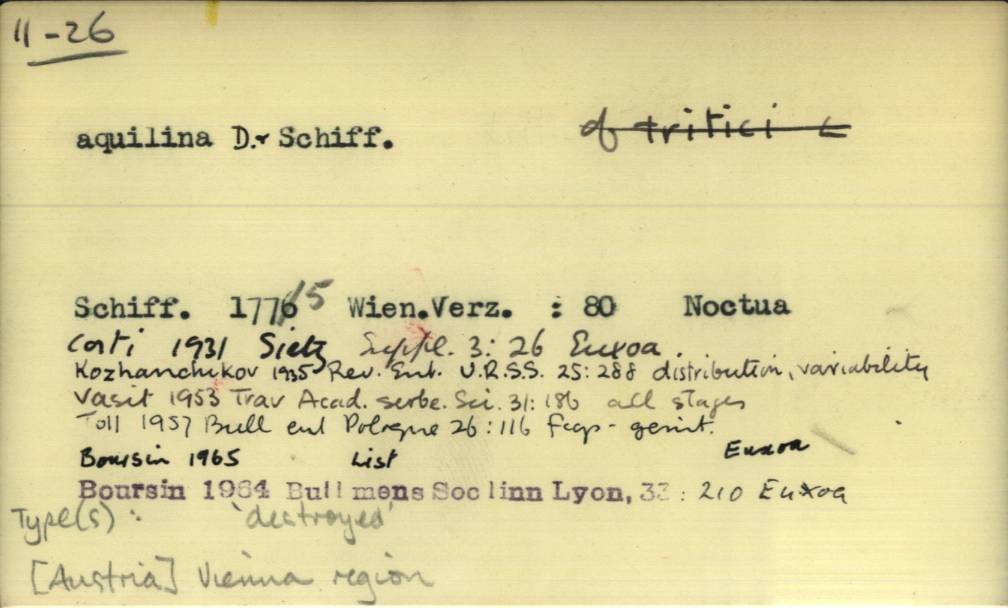 11-26
aquilina D.& Schiff. of tritici L
Schiff. 1776/5 Wien.Verz. : 80 Noctua
Corti 1931 Sietz Suppl. 3: 26 Euxoa.
Kozhanchikov 1935 Rev. Ent. U.R.S.S. 25: 288 distribution, variability
Vasit 1953 Trav Acad. serbe. Sci. 31: 186 all stages
Toll 1957 Bull ent Pologne 26: 116 genit.
Boursin 1965 List Euxoa
Boursin 1964 Bull mens Soc linn Lyon, 33 : 210 Euxoa
Type(s) : 'destroyed'
[Austria] Vienna region